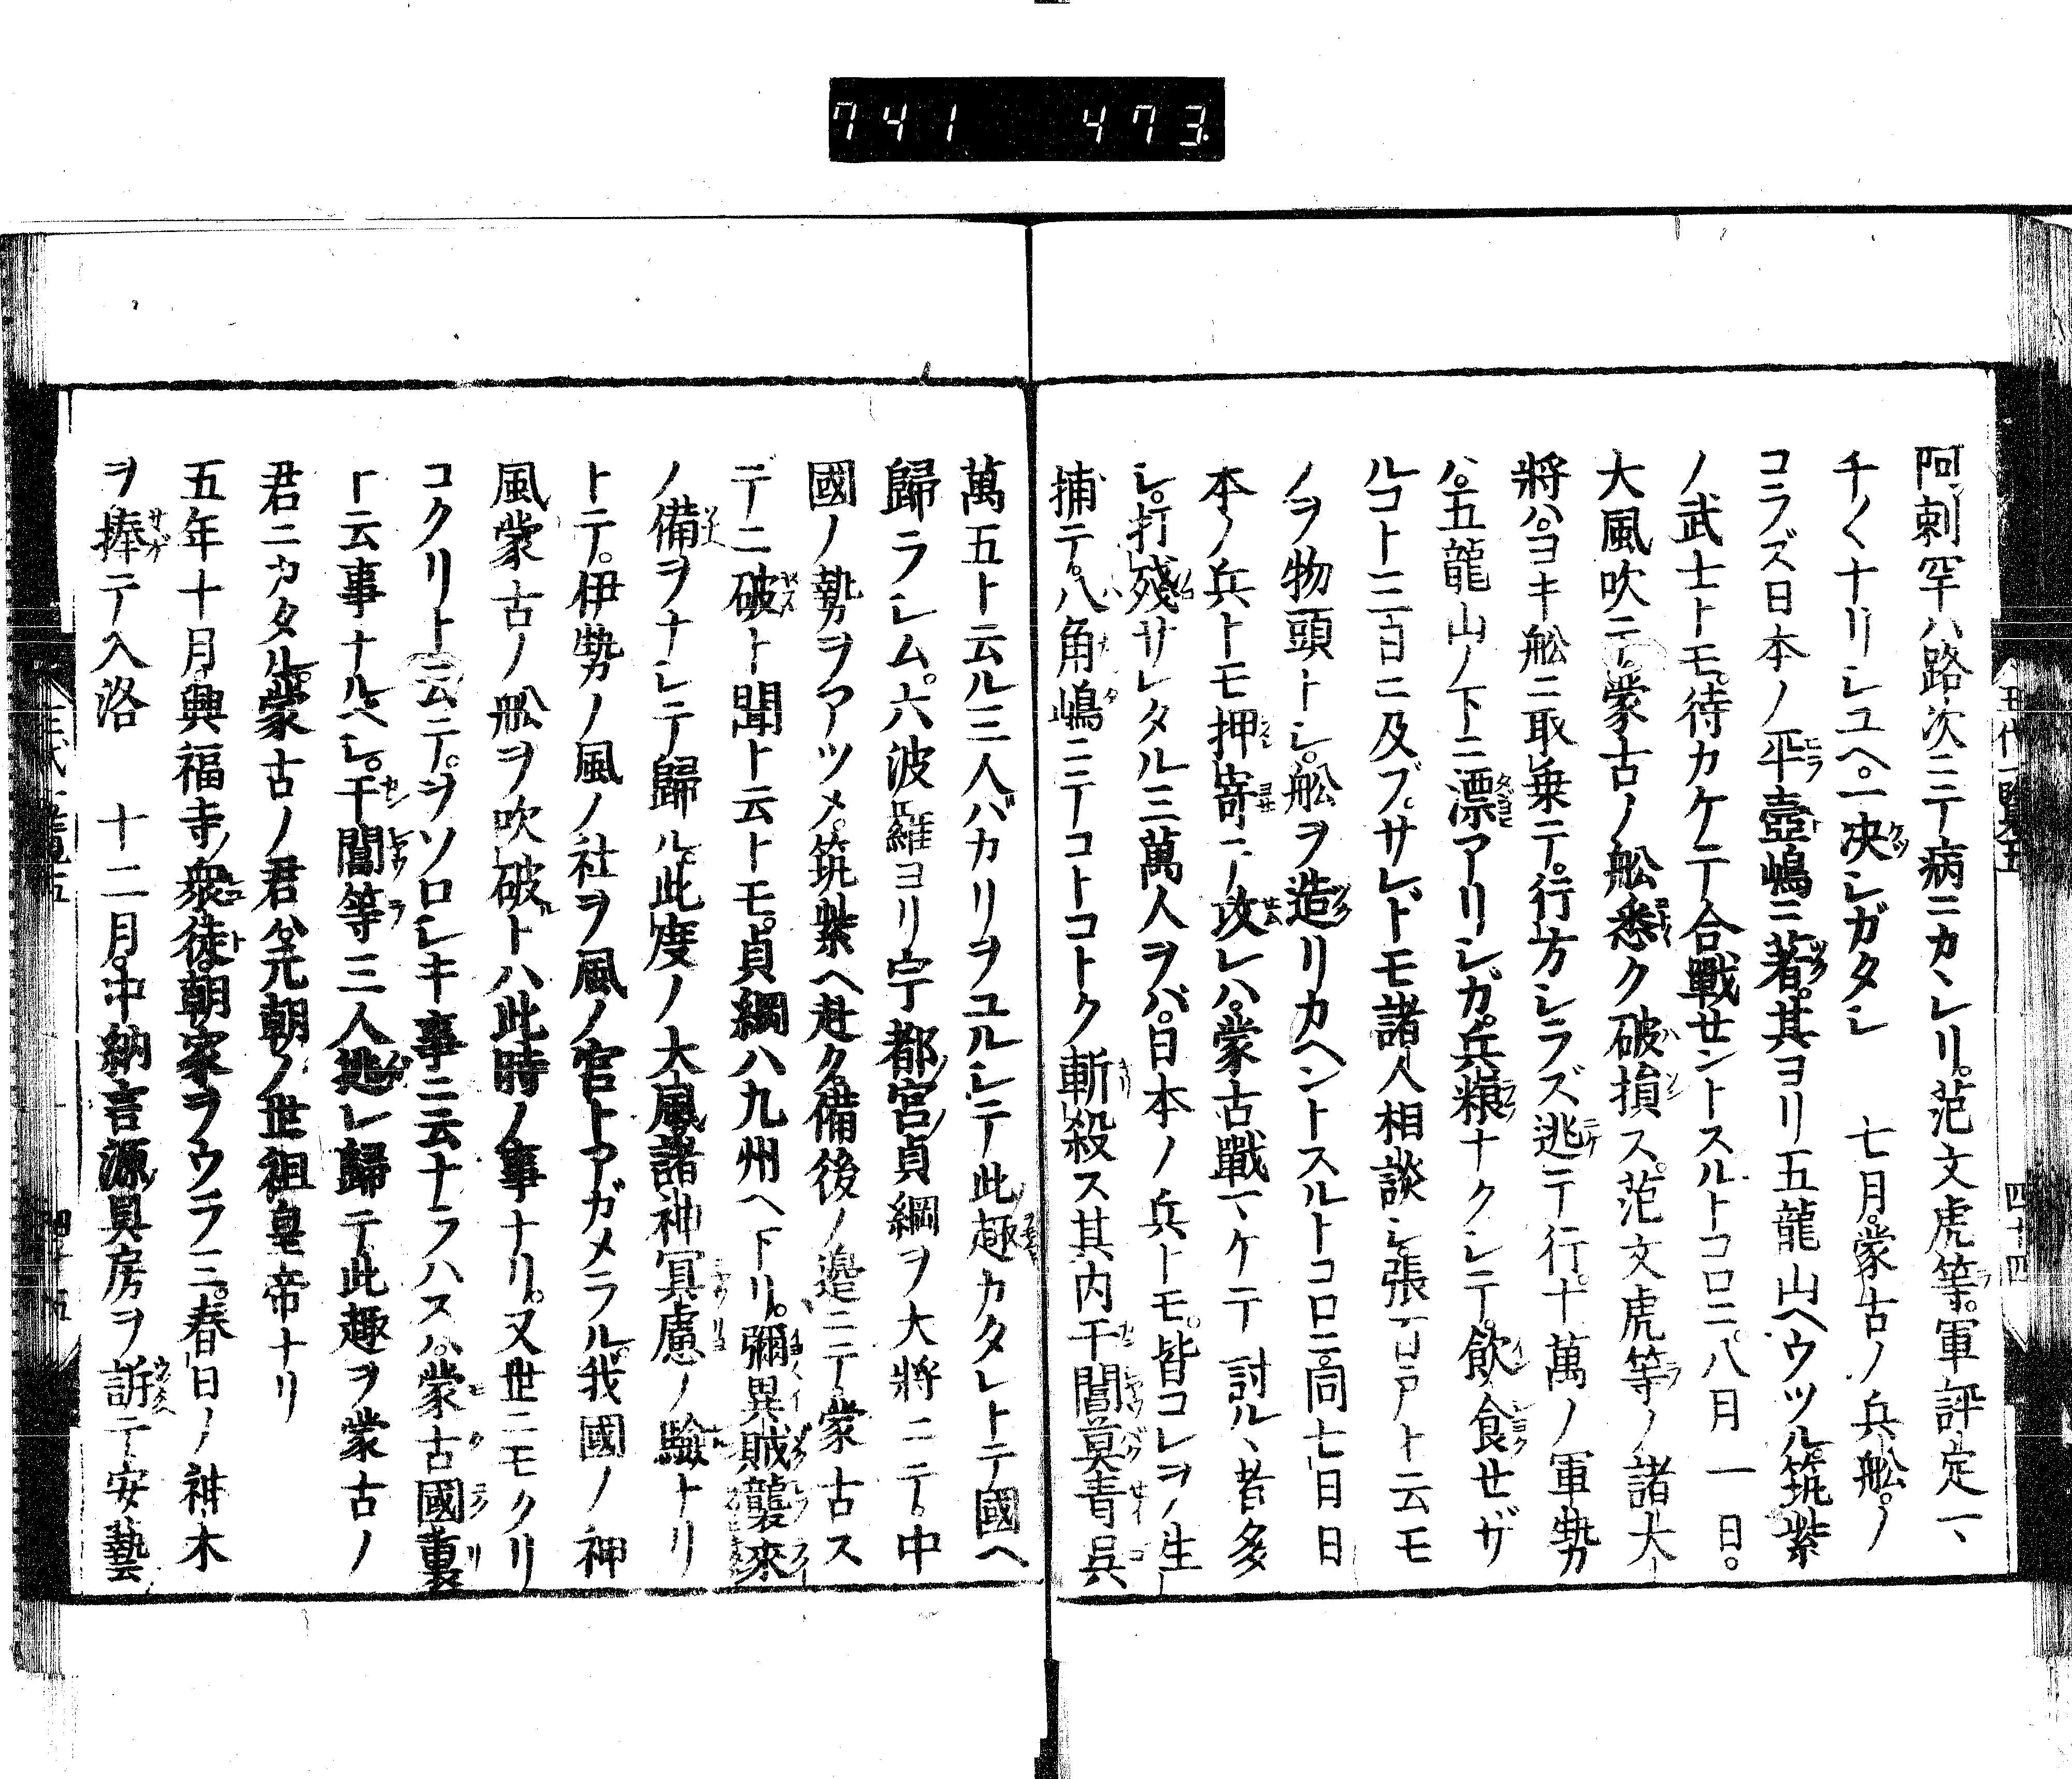 741 473
阿刺罕ハ路次ニテ病ニカヽレリ。范文虎等。軍評定一、
チ〱ナリシユヘ。一决シガタシ 七月。蒙古ノ兵舩。ノ
コラズ日本ノ平壺嶋ニ著。其ヨリ五龍山ヘウツル。筑紫
ノ武士トモ。待カケテ合戰セントスルトコロニ。八月一日。
大風吹テ蒙古ノ舩悉ク破損ス。范文虎等ノ諸大
將ハ。ヨキ舩ニ取乗テ。行方シラズ逃テ行。十萬ノ軍勢
ハ。五龍山ノ下ニ漂アリシガ。兵粮ナクシテ。飲食セザ
ルコト三日ニ及ブ。サレドモ諸人相談シ張百戸ト云モ
ノヲ物頭トシ。舩ヲ造リカヘントスルトコロニ。同七日日
本ノ兵トモ押寄テ攻レハ。蒙古戰マケテ討ルヽ者多
シ。打殘サレタル三萬人ヲバ。日本ノ兵トモ。皆コレヲ生
捕テ。八角嶋ニテコトコトク斬殺ス其内于閶莫青呉
萬五ト云ル三人バカリヲユルシテ此趣カタレトテ國ヘ
歸ラシム。六波羅ヨリ宇都宮貞綱ヲ大將ニテ。中
國ノ勢ヲアツメ。筑紫ヘ赴ク備後ノ邉ニテ蒙古ス
デニ破ト聞ト云トモ。貞綱ハ九州ヘ下リ。彌異賊襲來
ノ備ヲナシテ歸ル。此度ノ大風諸神冥慮ノ驗トリ
トテ。伊勢ノ風ノ社ヲ風ノ宮トアガメラル。我國ノ神
風蒙古ノ舩ヲ吹破トハ此時ノ事ナリ。又世ニモクリ
コクリト云テ。ヲソロシキ事ニ云ナラハスハ。蒙古國裏
ト云事ナルヘシ。于閶等三人逃レ歸テ此趣ヲ蒙古ノ
君ニカタル。蒙古ノ君ハ元朝ノ世祖皇帝ナリ
五年十月。興福寺ノ衆徒。朝家ヲウラミ。春日ノ神木
ヲ捧テ入洛 十二月。中納言源具房ヲ訴テ安藝